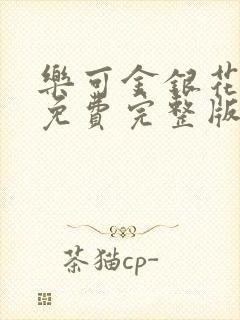 樂可金銀花
免費完整版
茶猫cp-